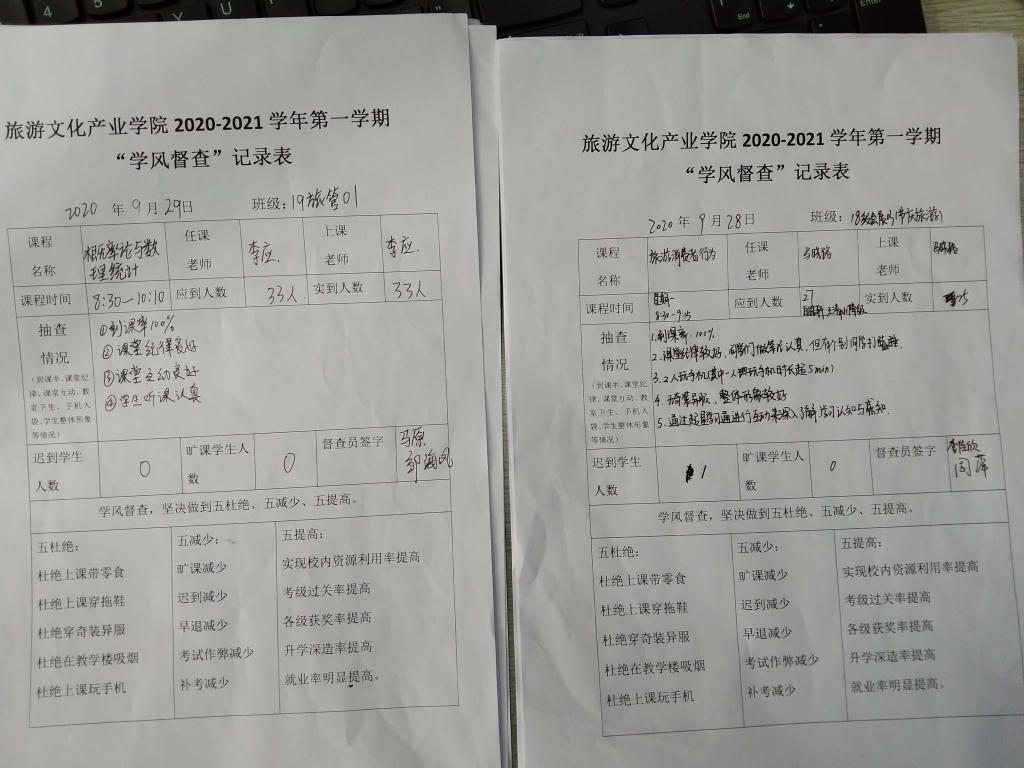 旅游文化产业学院 2020-2021 学年第一学期
“学风督查”记录表
2020 年 9 月 29 日 班级：19旅管01
课程名称 概率论与数理统计 任课老师 李应. 上课老师 李应.
课程时间 8:30—10:10 应到人数 33人 实到人数 33人
抽查情况
（到课率、课堂纪律、课堂互动、教室卫生、手机入袋、学生整体形象等情况）
①到课率100%
②课堂纪律良好
③课堂互动良好
④学生听课认真
迟到学生人数 0 旷课学生人数 0 督查员签字 马原
学风督查，坚决做到五杜绝、五减少、五提高。
五杜绝： 五减少： 五提高：
杜绝上课带零食 旷课减少 实现校内资源利用率提高
杜绝上课穿拖鞋 迟到减少 考级过关率提高
杜绝穿奇装异服 早退减少 各级获奖率提高
杜绝在教学楼吸烟 考试作弊减少 升学深造率提高
杜绝上课玩手机 补考减少 就业率明显提高。
旅游文化产业学院 2020-2021 学年第一学期
“学风督查”记录表
2020 年 9 月 28 日 班级：
课程名称 旅游消费者行为 任课老师 上课老师
课程时间 星期一 8:30-9:15 应到人数 27 实到人数 25
抽查情况
（到课率、课堂纪律、课堂互动、教室卫生、手机入袋、学生整体形象等情况）
1.到课率：100%
2.课堂纪律较好，同学们做笔记认真，但有个别同学打瞌睡.
3.2人玩手机(其中一人玩手机时长超5min)
4.无奇装异服，整体形象较好
5.通过超星学习通进行互动来深入了解学习认知与感知.
迟到学生人数 1 旷课学生人数 0 督查员签字 周萍
学风督查，坚决做到五杜绝、五减少、五提高。
五杜绝： 五减少： 五提高：
杜绝上课带零食 旷课减少 实现校内资源利用率提高
杜绝上课穿拖鞋 迟到减少 考级过关率提高
杜绝穿奇装异服 早退减少 各级获奖率提高
杜绝在教学楼吸烟 考试作弊减少 升学深造率提高
杜绝上课玩手机 补考减少 就业率明显提高。